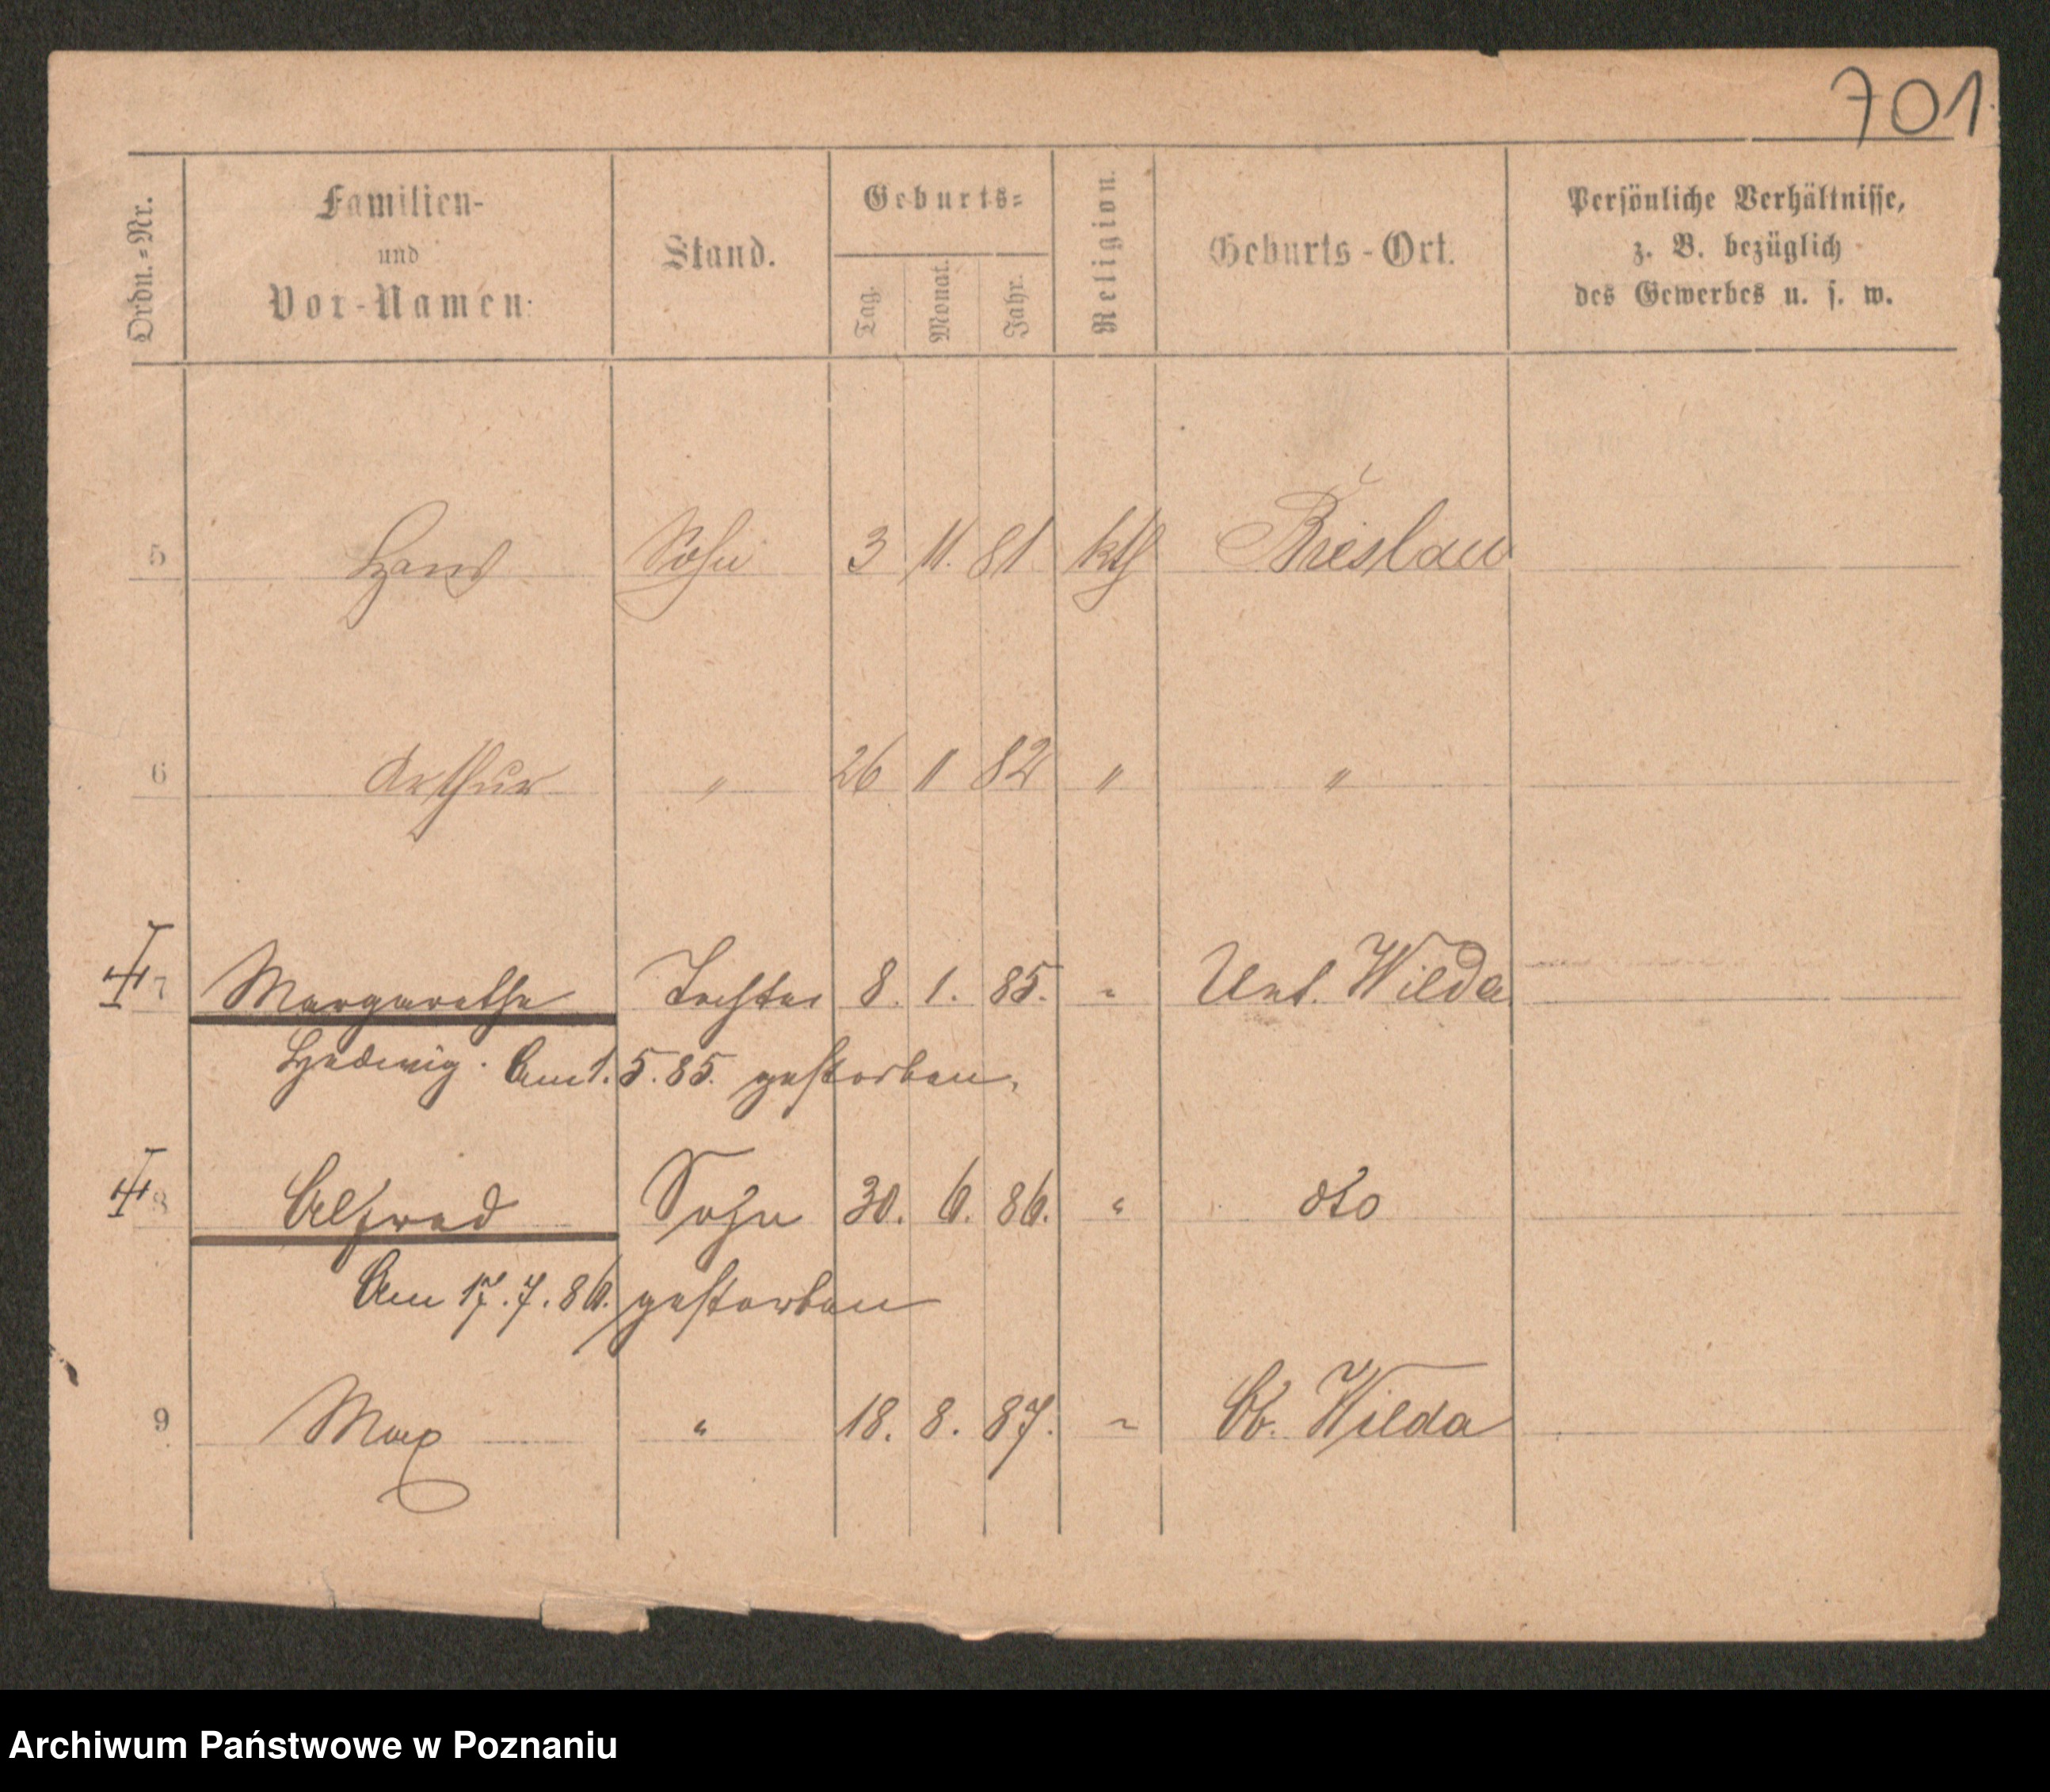 701.
Ordn.=Nr.
Familien-
und
Vor-Namen.
Stand.
Geburts=
Tag.
Monat.
Jahr.
Religion.
Geburts-Ort.
Persönliche Verhältnisse,
z. B. bezüglich
des Gewerbes u. s. w.
5 Hans Sohn 3 11. 81 kth Breslau
6 Arthur " 26 11 82 " "
7 Margarethe Tochter 8. 1. 85. " Unt. Wilda
Hedwig. Am 1.5.85. gestorben.
8 Alfred Sohn 30. 6. 86. " dto
Am 17.7.86. gestorben
9 Max " 18. 8. 87. " Ob. Wilda
Archiwum Państwowe w Poznaniu